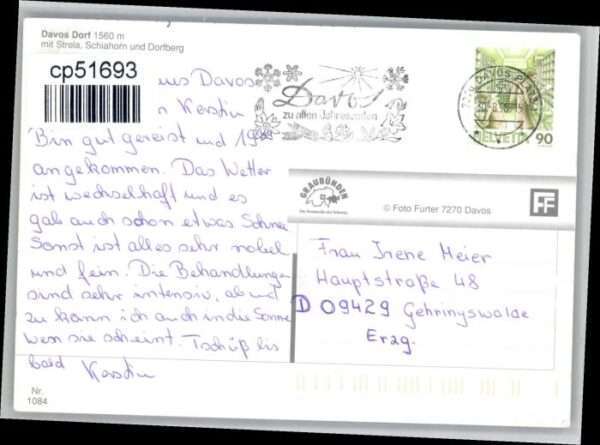 Davos Dorf 1560 m
mit Strela, Schiahorn und Dorfberg
cp51693
Davos
Kerstin
Bin gut gereist und
angekommen. Das Wetter
ist wechselhaft und es
gab auch schon etwas Schnee
Sonst ist alles sehr nobel
und fein. Die Behandlungen
sind sehr intensiv, ab und
zu kann ich auch in die Sonne
wen sie scheint. Tschüß bis
bald Kerstin
Nr.
1084
Davos
zu allen Jahreszeiten
HELVETIA 90
GRAUBÜNDEN
© Foto Furter 7270 Davos
FF
Frau Irene Meier
Hauptstraße 48
D 09429 Gehringswalde
Erzg.